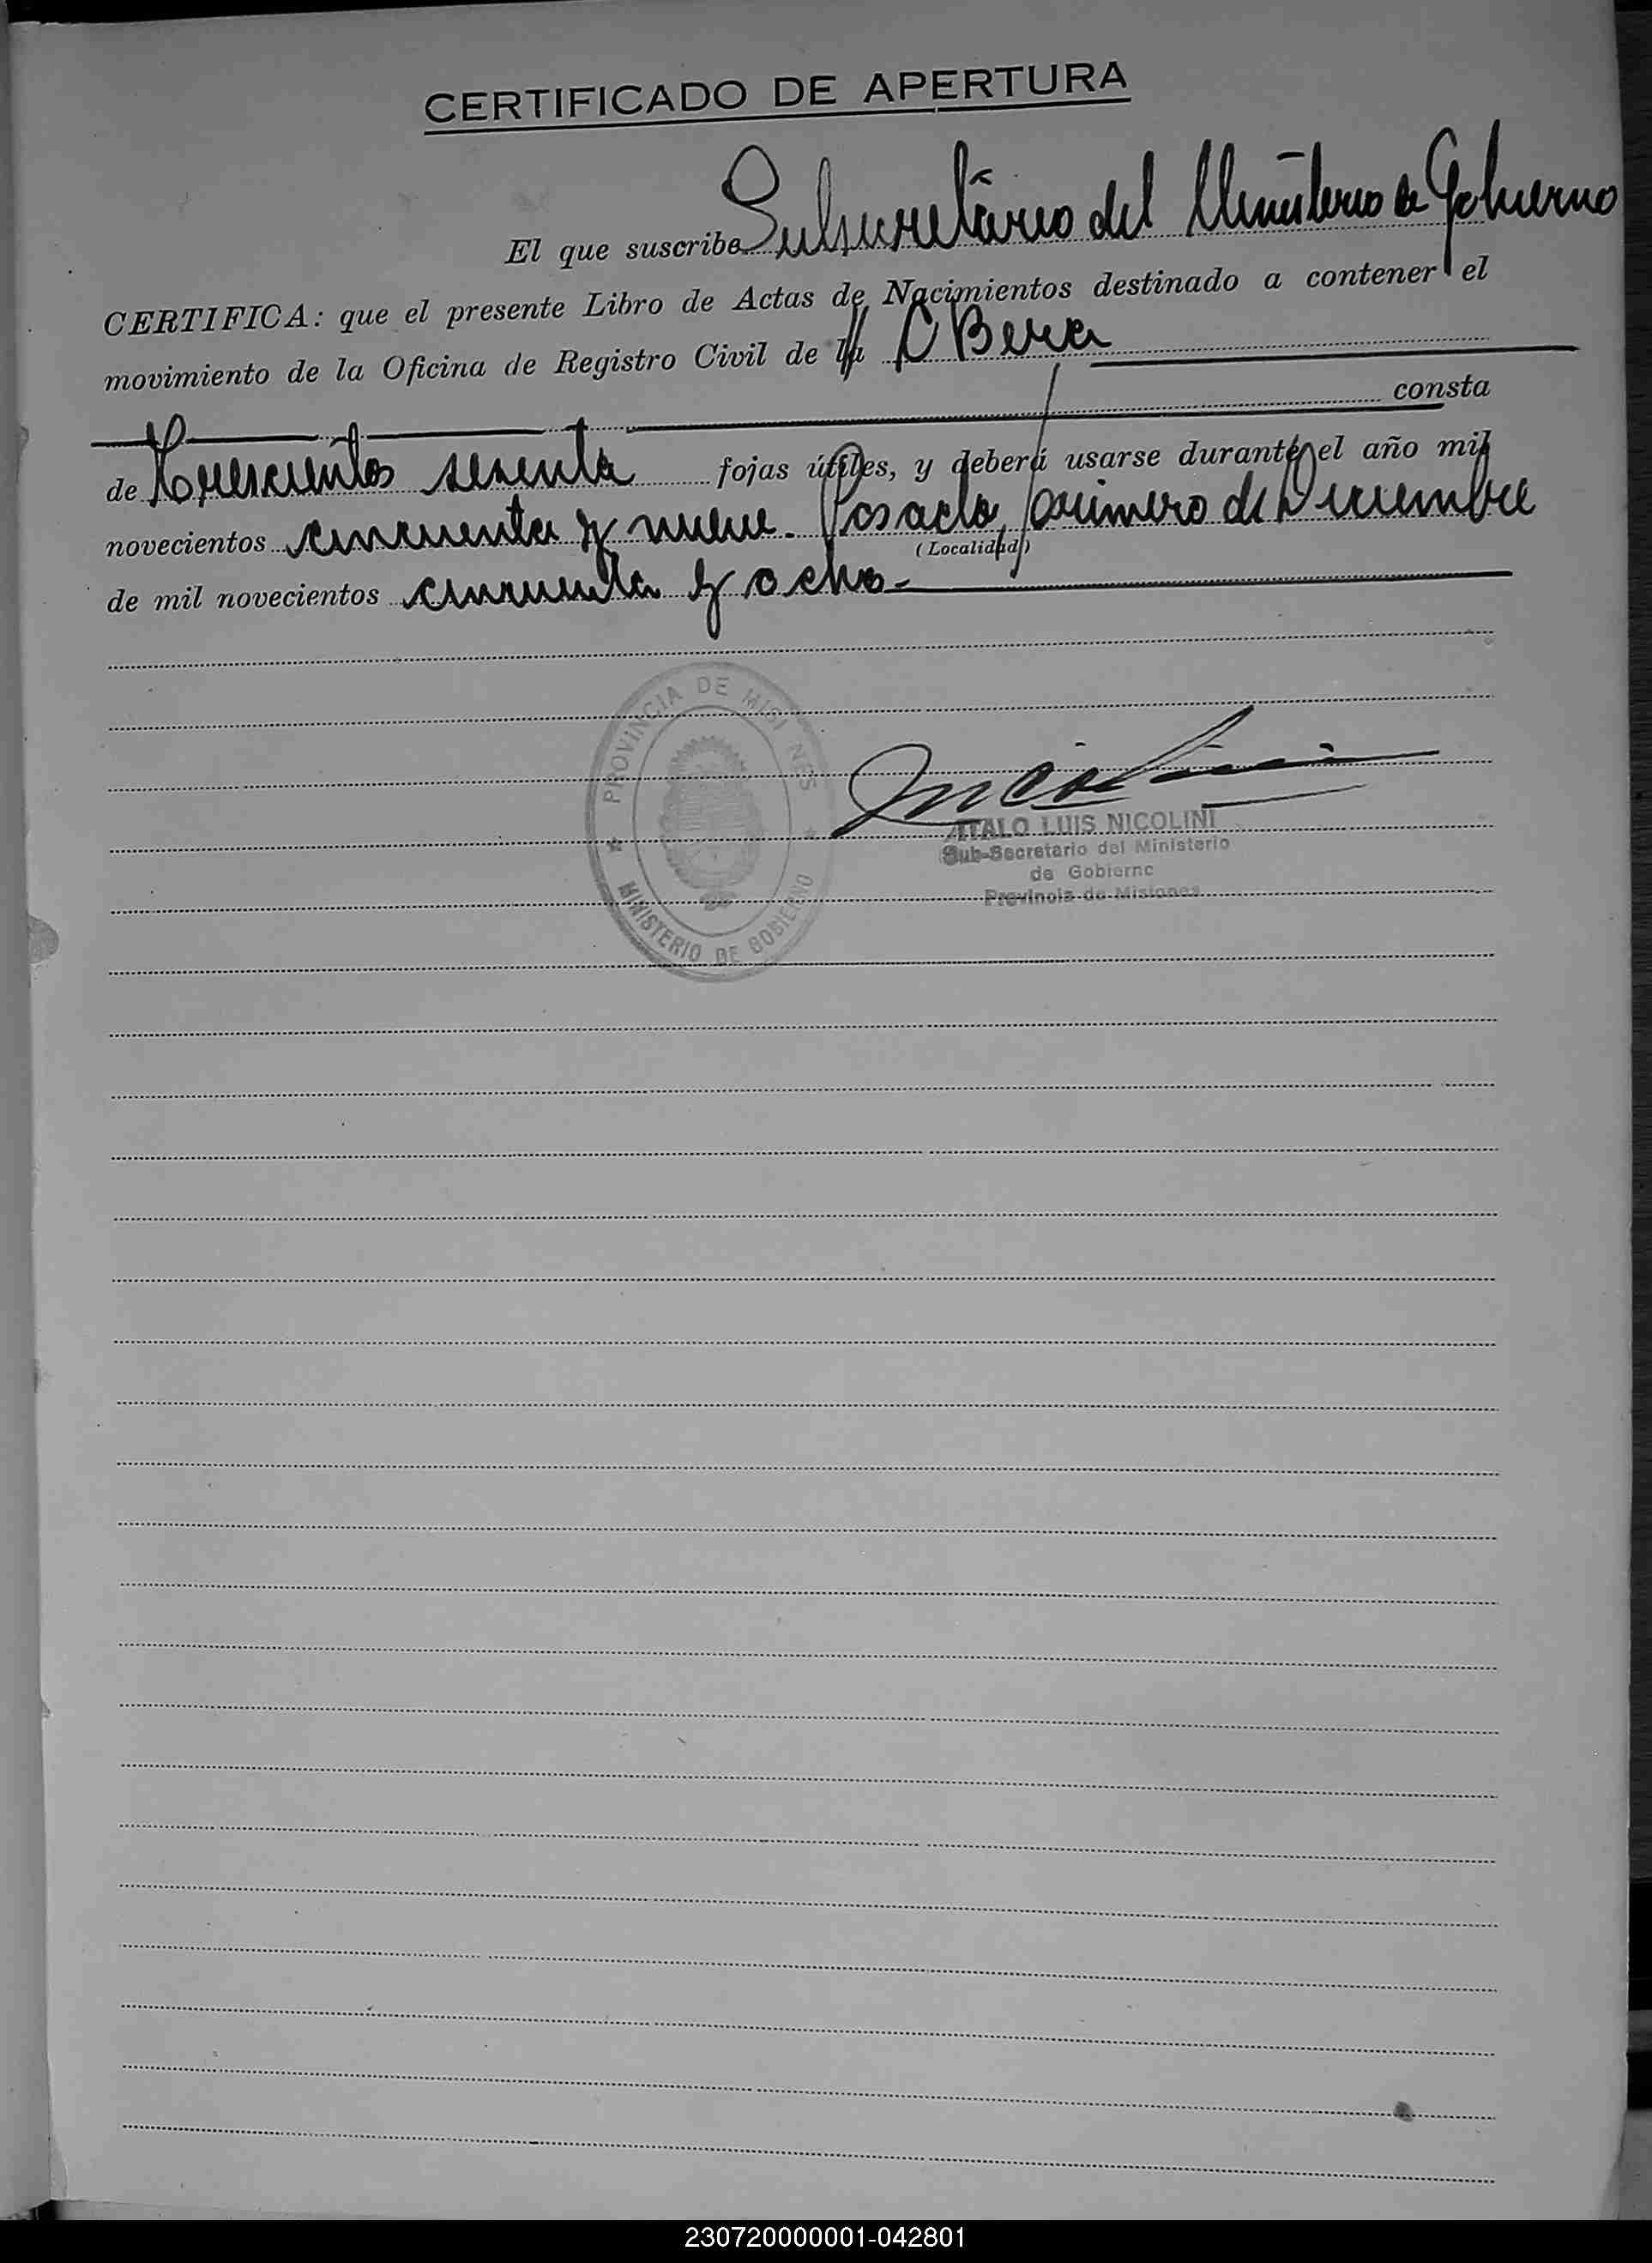 CERTIFICADO DE APERTURA
El que suscribe Subsecretario del Ministerio de Gobierno
CERTIFICA: que el presente Libro de Actas de Nacimientos destinado a contener el
movimiento de la Oficina de Registro Civil de la OBera
consta
de Trescientos sesenta fojas útiles, y deberá usarse durante el año mil
novecientos cincuenta y nueve. Posadas, primero de Diciembre
(Localidad)
de mil novecientos cincuenta y ocho.-
PROVINCIA DE MISI NES
MINISTERIO DE GOBIERNO
ITALO LUIS NICOLINI
Sub-Secretario del Ministerio
de Gobierno
Provincia de Misiones
230720000001-042801